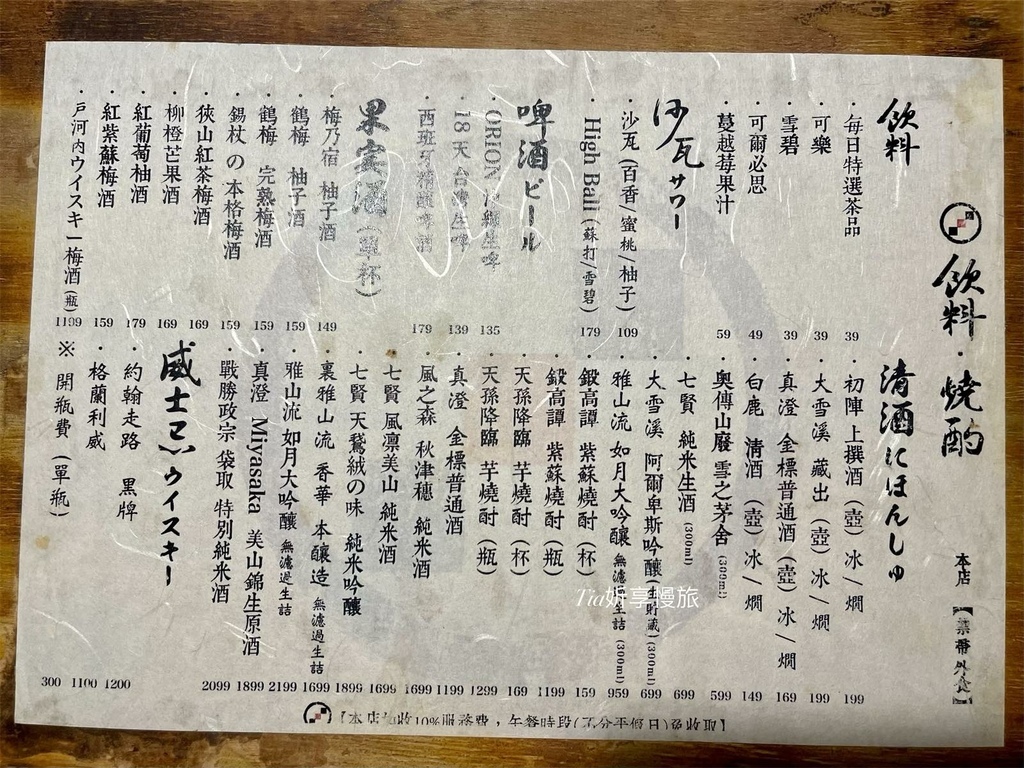 飲料・燒酌
本店【禁帶外食】
飲料
・每日特選茶品 39
・可樂 39
・雪碧 39
・可爾必思 49
・蔓越莓果汁 59
沙瓦サワー
・沙瓦(百香/蜜桃/柚子) 109
・High Ball(蘇打/雪碧) 179
啤酒ビール
・ORION 沖繩生啤 135
・18天台灣生啤 139
・西班牙精釀啤酒 179
果実酒(單杯)
・梅乃宿 柚子酒 149
・鶴梅 柚子酒 159
・鶴梅 完熟梅酒 159
・錫杖の本格梅酒 159
・狹山紅茶梅酒 169
・柳橙芒果酒 169
・紅葡萄柚酒 179
・紅紫蘇梅酒 159
・戸河内ウイスキー梅酒(瓶) 1199
清酒にほんしゅ
・初陣上撰酒(壺)冰/燗 199
・大雪溪 藏出(壺)冰/燗 199
・真澄 金標普通酒(壺)冰/燗 169
・白鹿 清酒(壺)冰/燗 149
・奧傳山廢 雪之茅舍(300ml) 599
・七賢 純米生酒(300ml) 699
・大雪溪 阿爾卑斯吟釀(生貯藏)(300ml) 699
・雅山流 如月大吟釀 無濾過生詰(300ml) 959
・鍛高譚 紫蘇燒酎(杯) 159
・鍛高譚 紫蘇燒酎(瓶) 1199
・天孫降臨 芋燒酎(杯) 169
・天孫降臨 芋燒酎(瓶) 1299
・真澄 金標普通酒 1199
・風之森 秋津穗 純米酒 1699
・七賢 風凛美山 純米酒 1699
・七賢 天鵞絨の味 純米吟釀 1899
・裏雅山流 香華 本釀造 無濾過生詰 1699
・雅山流 如月大吟釀 無濾過生詰 2199
・真澄 Miyasaka 美山錦生原酒 1899
・戰勝政宗 袋取 特別純米酒 2099
威士忌ウイスキー
・約翰走路 黑牌 1200
・格蘭利威 1100
※開瓶費(單瓶) 300
Tia妡享慢旅